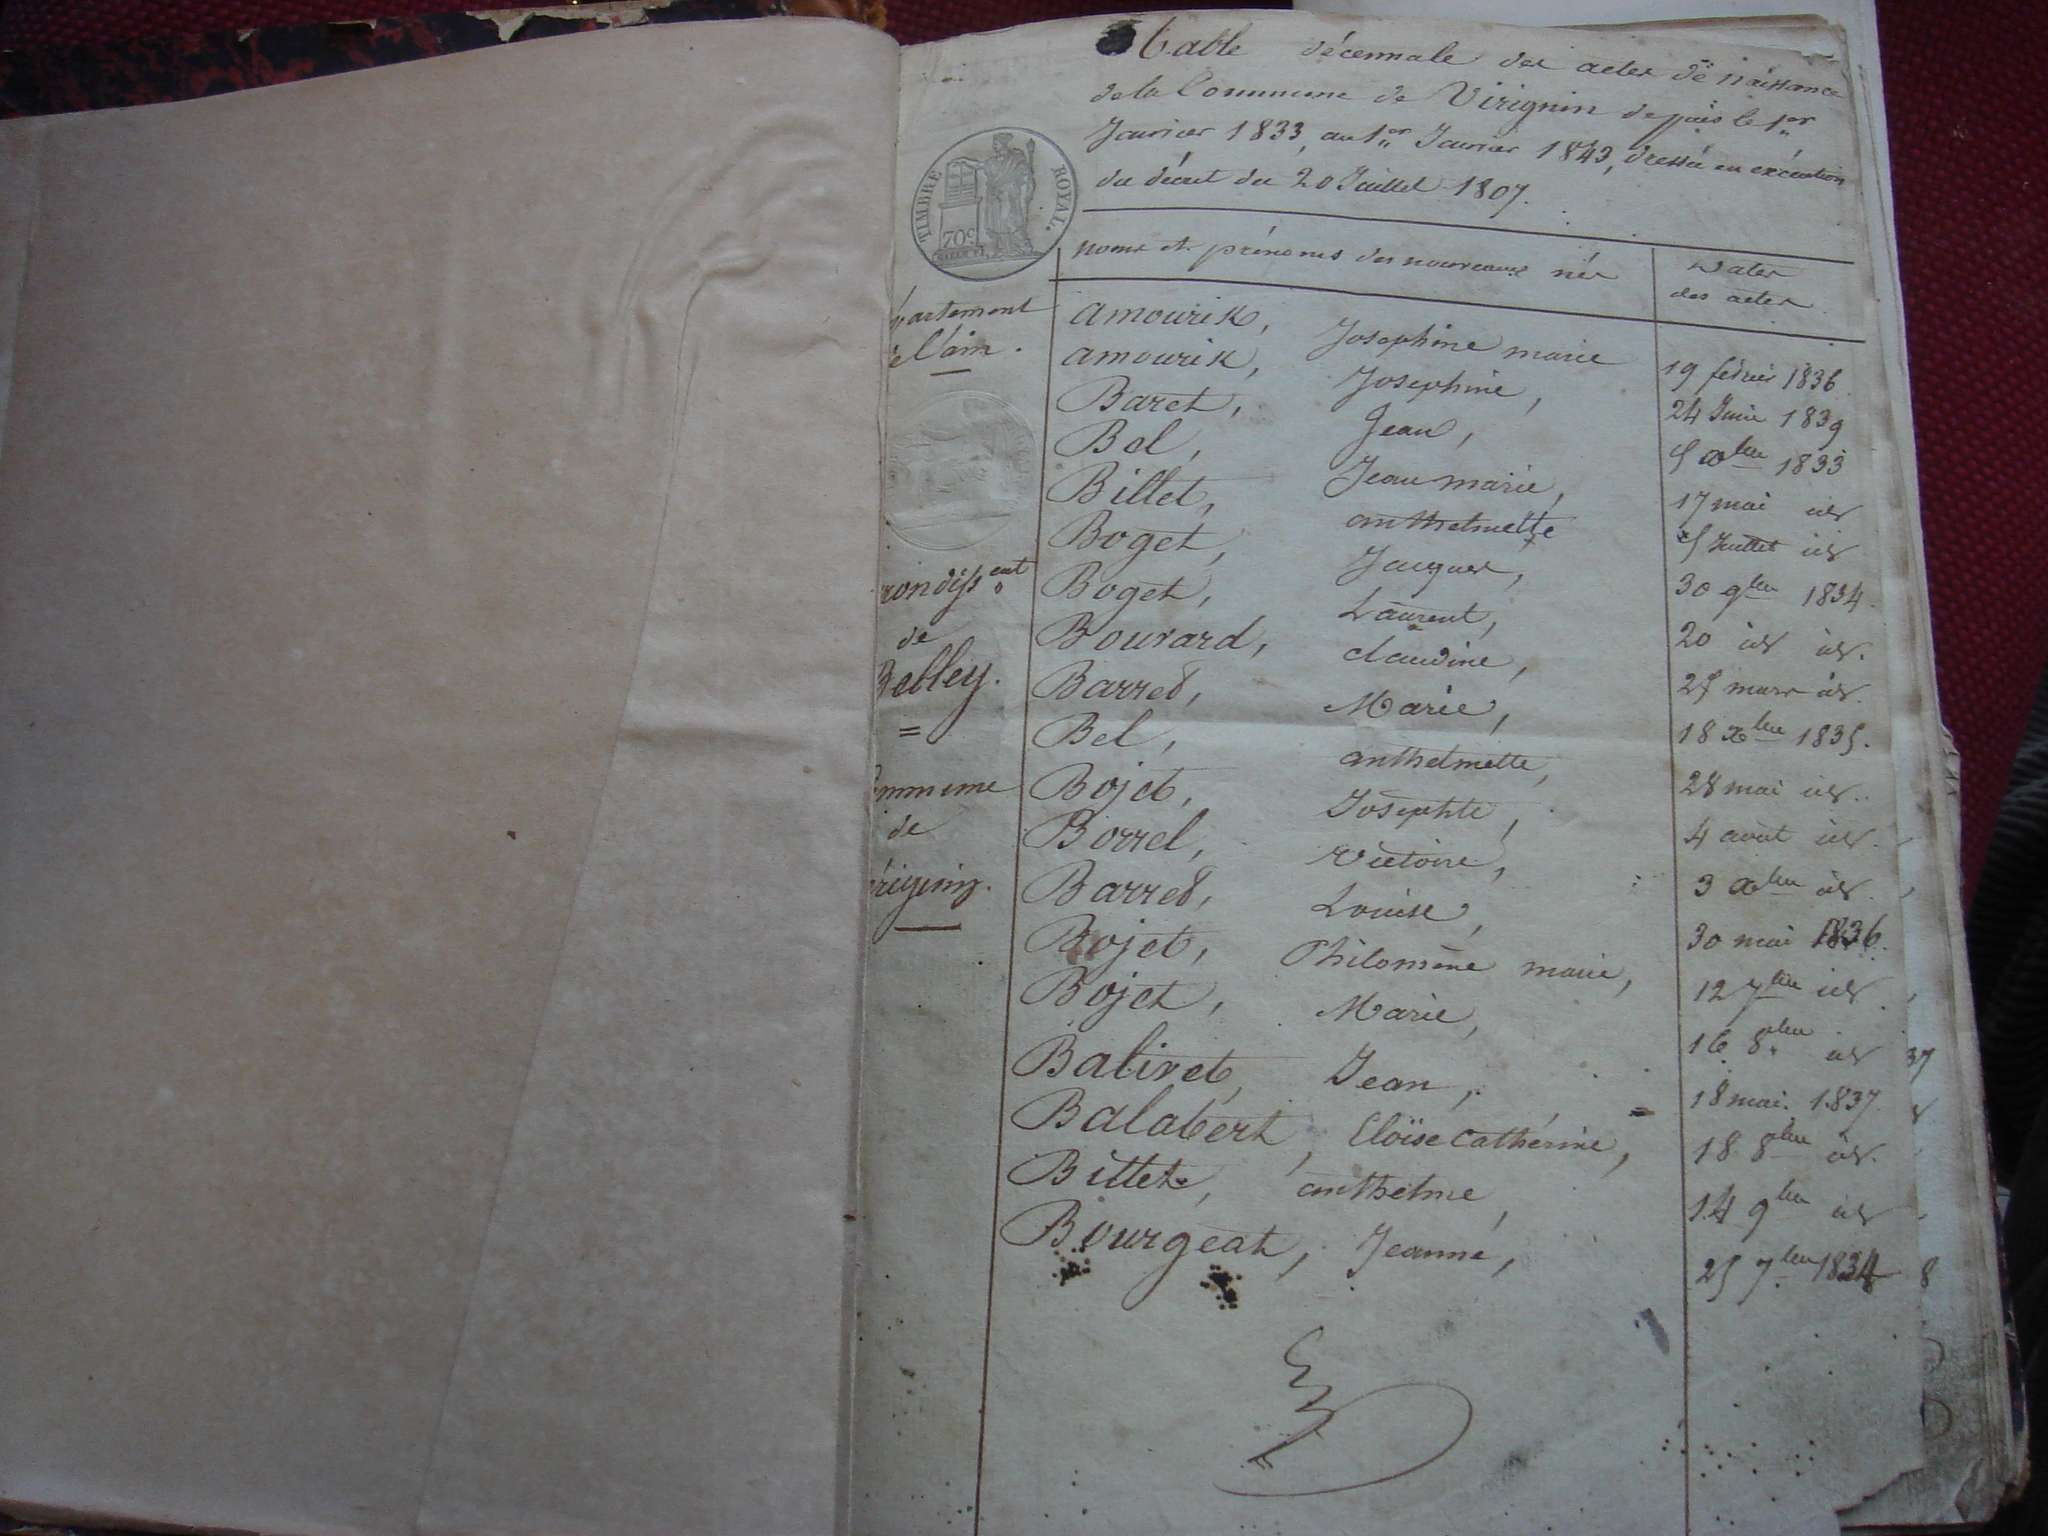 Table décennale des actes de naissance
de la Commune de Virignin depuis le 1er
Janvier 1833, au 1er Janvier 1843, dressée en exécution
du décret du 20 Juillet 1807.
TIMBRE ROYAL.
70c
noms et prénoms des nouveaux nés
Dates
des actes
partement
l'ain.
rondisst
de
Belley.
=
ommune
de
irignin.
amourik, Josephine marie 19 février 1836
amourik, Josephine, 24 Juin 1839
Baret, Jean, 5 xbre 1833
Bel, Jean marie, 17 mai id
Billet, anthelmette 5 Juillet id
Boget, Jacques, 30 9bre 1834.
Boget, Laurent, 20 id id.
Bouvard, claudine, 25 mars id.
Barret, Marie, 18 xbre 1835.
Bel, anthelmette, 28 mai id.
Bojet, Josephte, 4 août id.
Borrel, Victoire, 3 xbre id.
Barret, Louise, 30 mai 1836.
Bojet, Philomène marie, 12 7bre id
Bojet, Marie, 16 8bre id
Balivet, Jean, 18 mai. 1837
Balabert, Eloïse Cathérine, 18 8bre id.
Billet, anthelme, 14 9bre id
Bourgeat, Jeanne, 25 7bre 1834
37
8